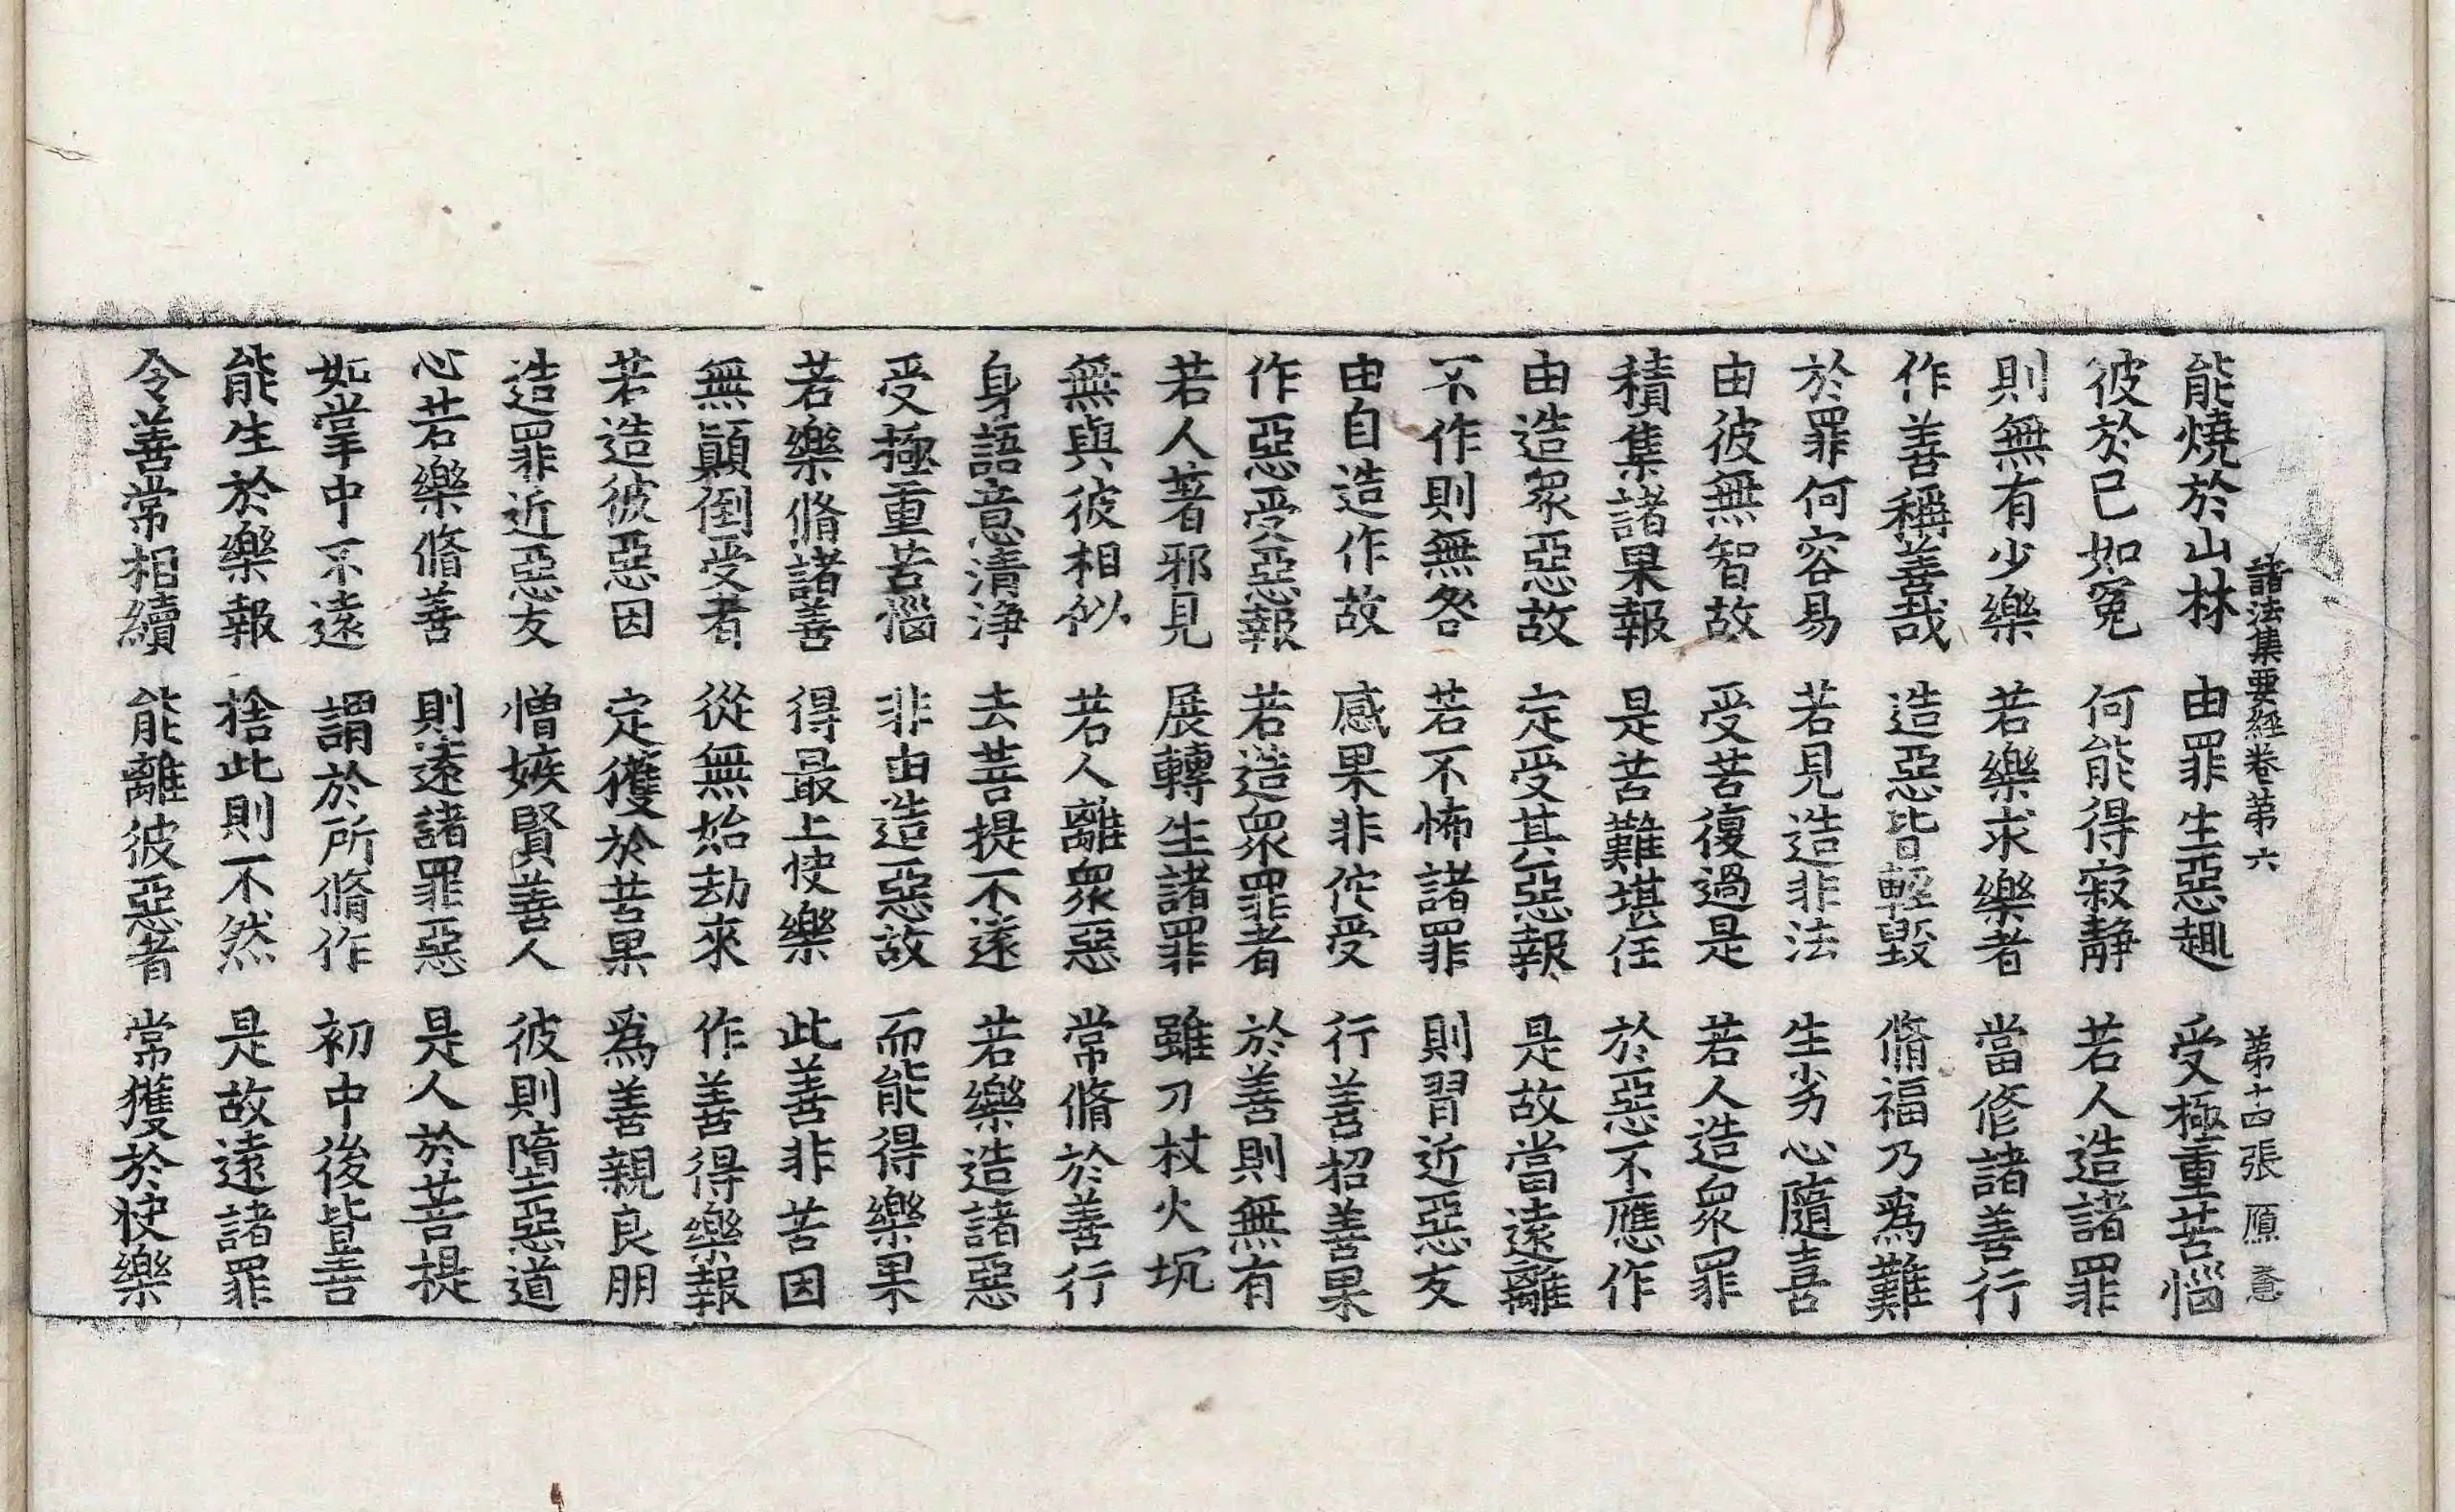 諸法集要經卷第六 第十四張 願
能燒於山林 由罪生惡趣 受極重苦惱
彼於己如冤 何能得寂靜 若人造諸罪
則無有少樂 若樂求樂者 當修諸善行
作善稱善哉 造惡皆輕毀 脩福乃爲難
於罪何容易 若見造非法 生劣心隨喜
由彼無智故 受苦復過是 若人造衆罪
積集諸果報 是苦難堪任 於惡不應作
由造衆惡故 定受其惡報 是故當遠離
不作則無咎 若不怖諸罪 則習近惡友
由自造作故 感果非佗受 行善招善果
作惡受惡報 若造衆罪者 於善則無有
若人著邪見 展轉生諸罪 雖刀杖火坑
無與彼相似 若人離衆惡 常脩於善行
身語意清淨 去菩提不遠 若樂造諸惡
受極重苦惱 非由造惡故 而能得樂果
若樂脩諸善 得最上快樂 此善非苦因
無顚倒受者 從無始劫來 作善得樂報
若造彼惡因 定獲於苦果 爲善親良朋
造罪近惡友 憎嫉賢善人 彼則墮惡道
心若樂脩善 則遠諸罪惡 是人於菩提
如掌中不遠 謂於所脩作 初中後皆善
能生於樂報 捨此則不然 是故遠諸罪
令善常相續 能離彼惡者 常獲於快樂